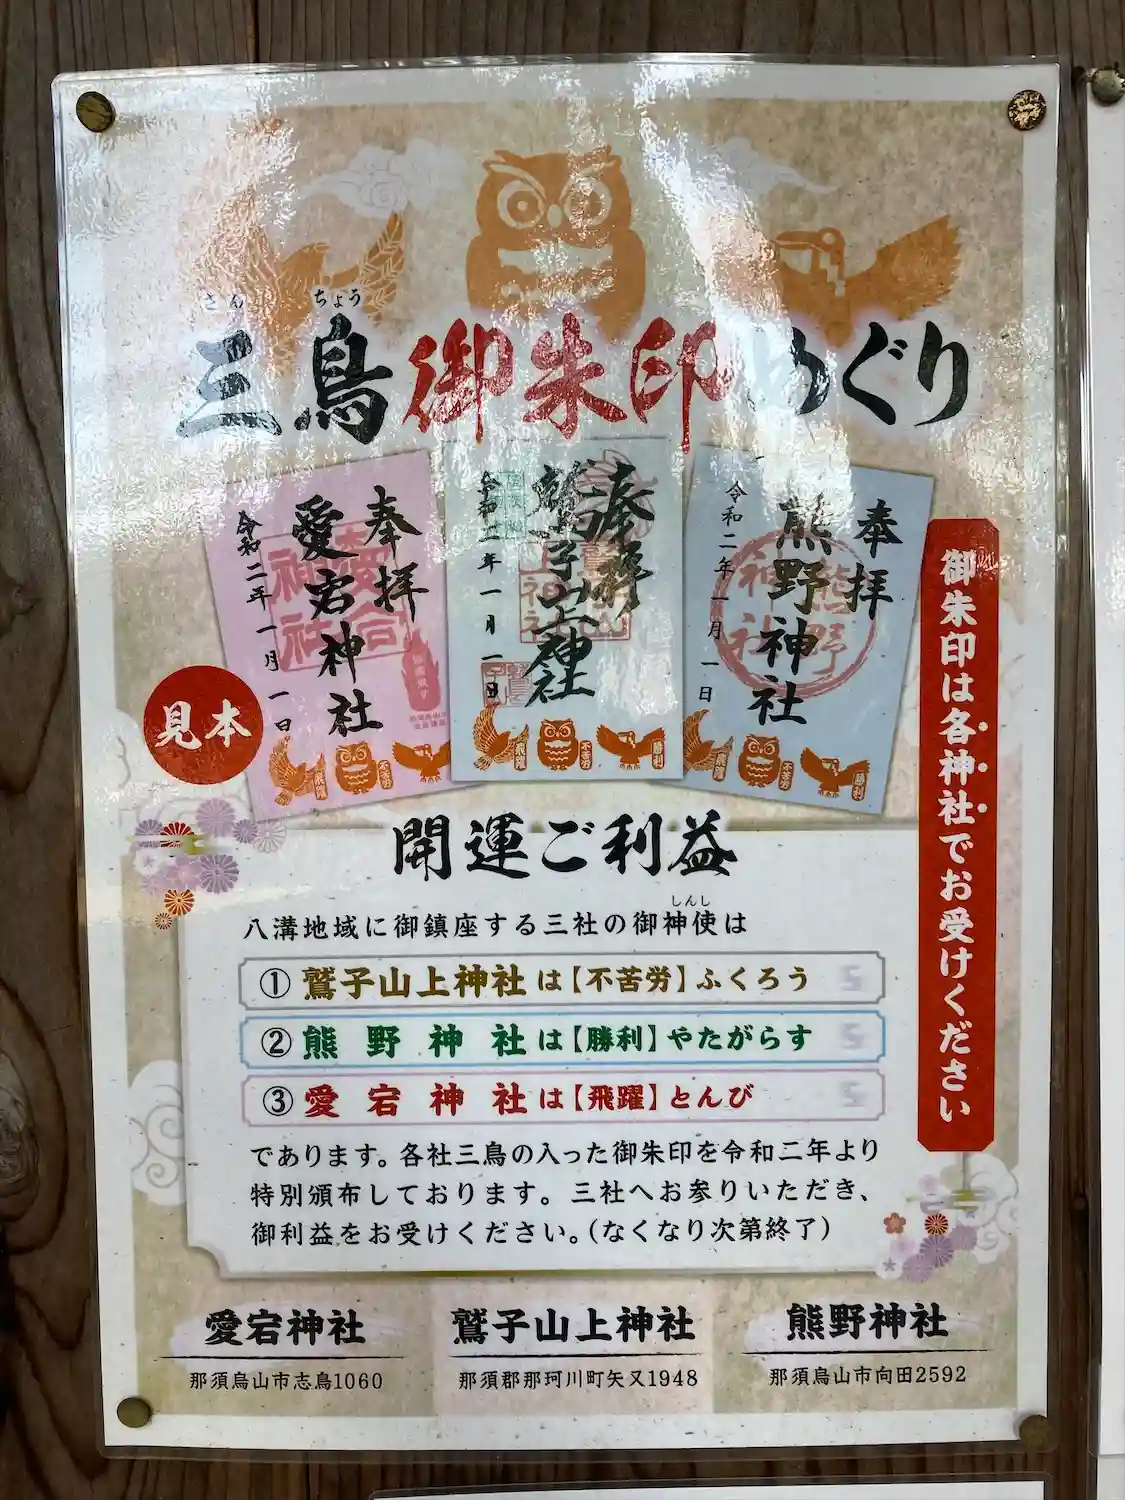 さん ちょう
三鳥御朱印めぐり
奉拝
愛宕神社
令和二年一月一日
愛宕神社
飛躍 不苦労
奉拝
鷲子山上神社
令和二年一月一日
飛躍 不苦労 勝利
奉拝
熊野神社
令和二年一月一日
熊野神社
飛躍 不苦労 勝利
見本
御朱印は各神社でお受けください
開運ご利益
しんし
八溝地域に御鎮座する三社の御神使は
①鷲子山上神社は【不苦労】ふくろう
②熊野神社は【勝利】やたがらす
③愛宕神社は【飛躍】とんび
であります。各社三鳥の入った御朱印を令和二年より
特別頒布しております。三社へお参りいただき、
御利益をお受けください。(なくなり次第終了)
愛宕神社
那須烏山市志鳥1060
鷲子山上神社
那須郡那珂川町矢又1948
熊野神社
那須烏山市向田2592